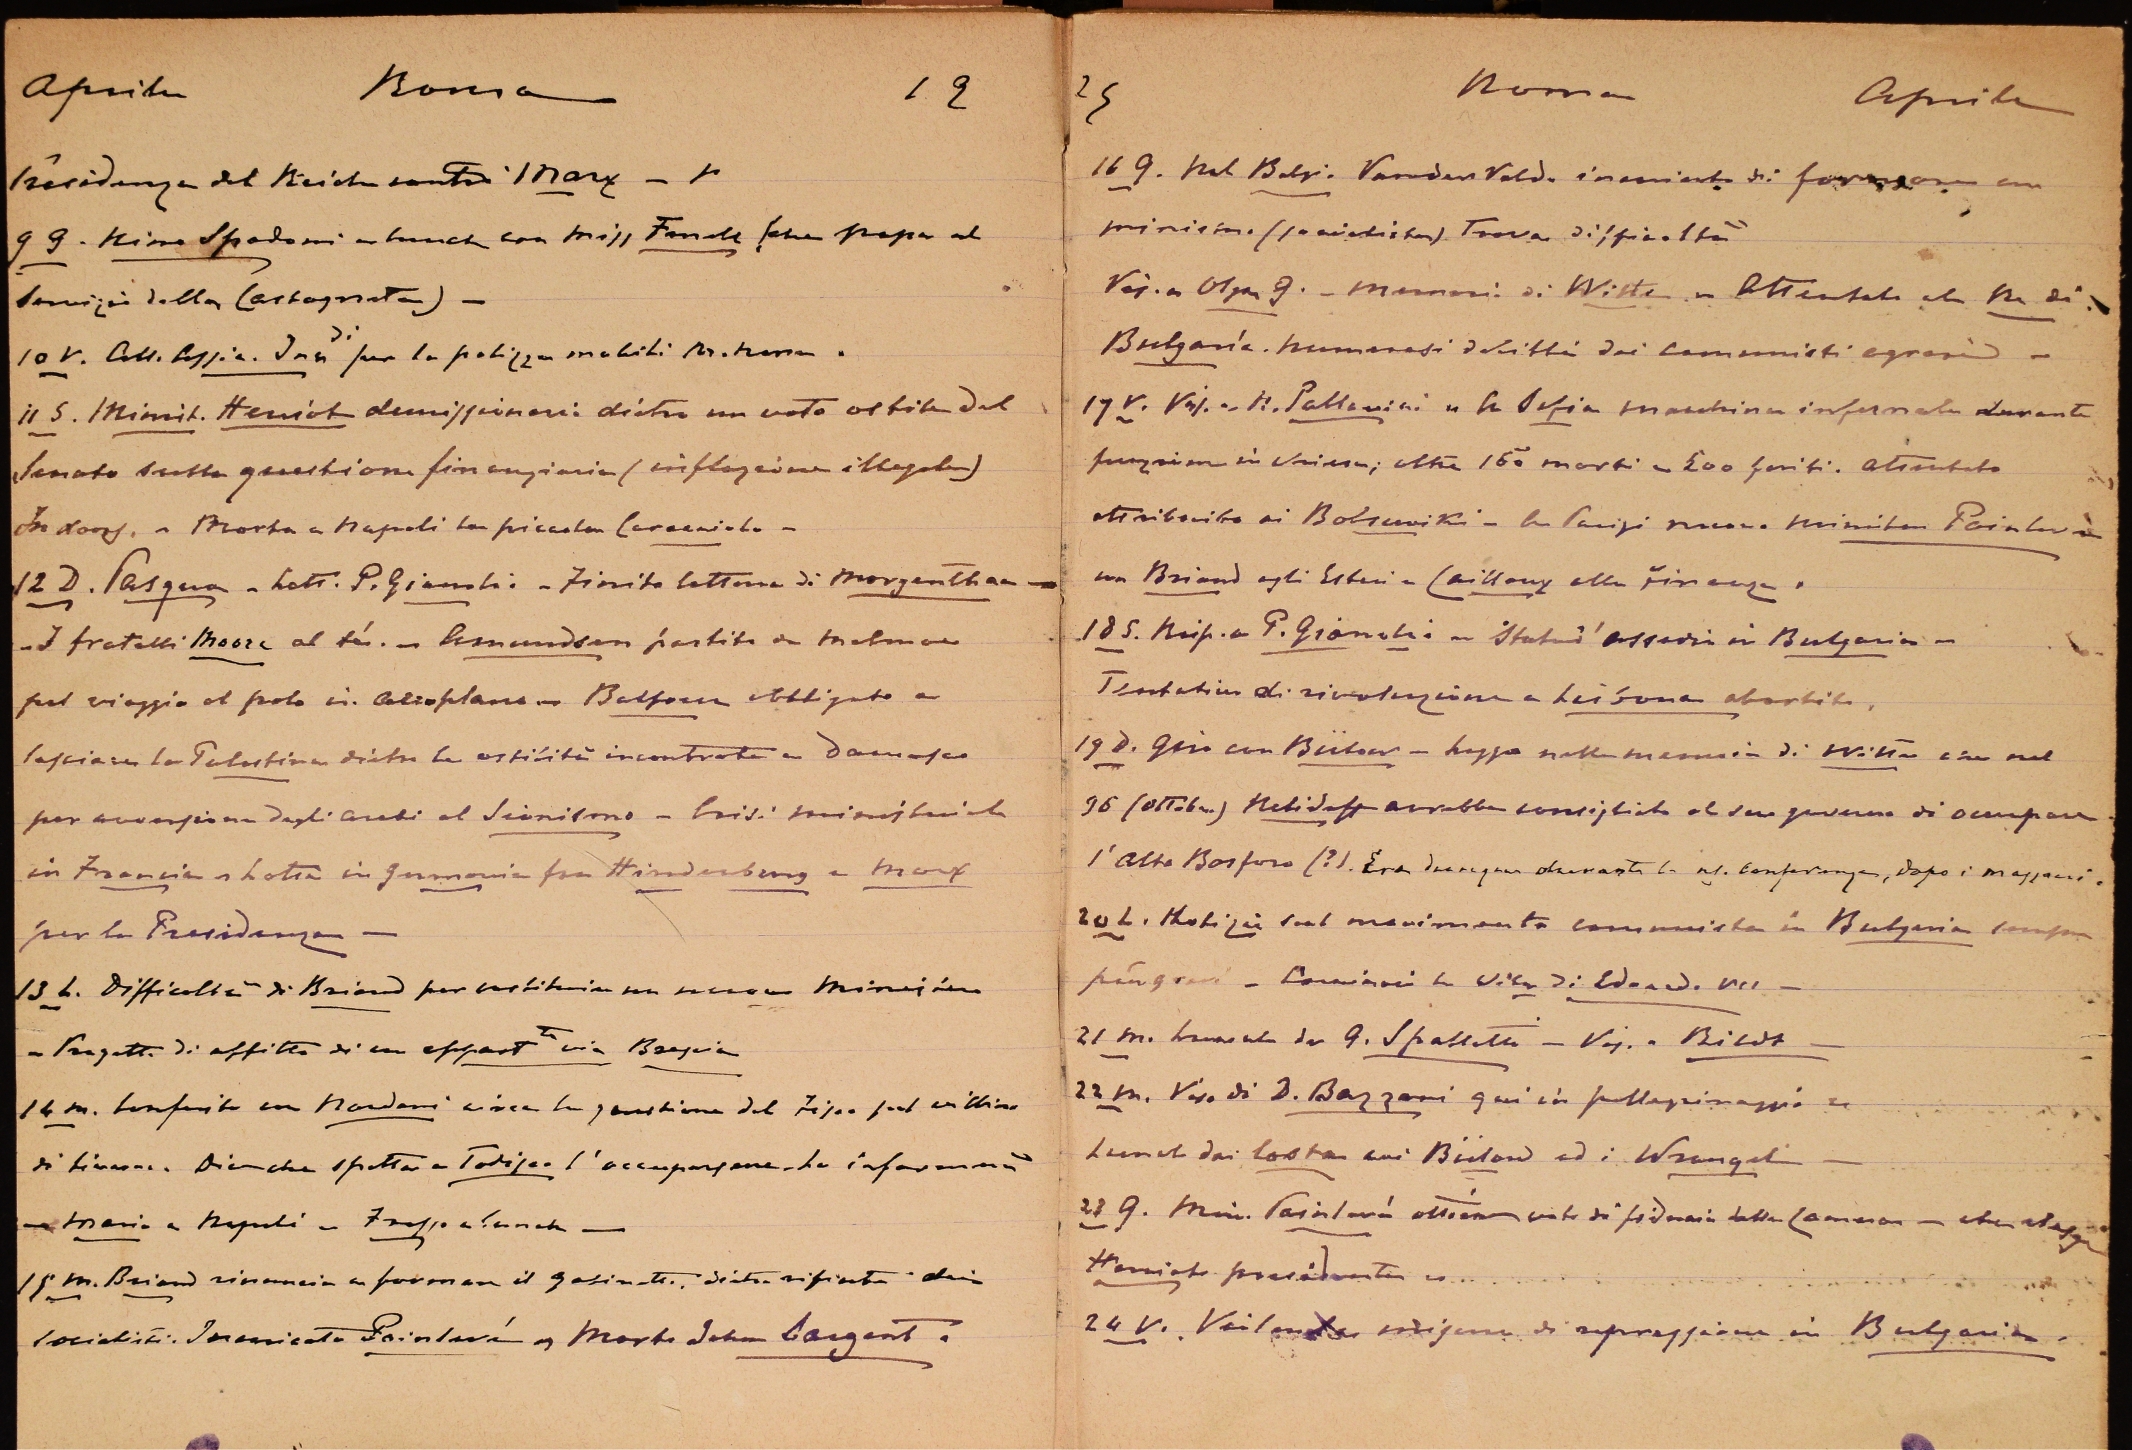 Aprile Roma 19
Presidenza del Reich contro Marx –
9 G. Nino Spadoni a lunch con Miss
servizio della Castagneta) –
10 V. Ass. per la polizza mobili
11 S. Minist. Herriot dimissionario dietro un voto ostile del
Senato sulla questione finanziaria (inflazione illegale)
– Morta a Napoli la piccola Caracciolo –
12 D. Pasqua – Lett. P. – Finito lettura di Morgenthau –
– I fratelli Moore al tè. – Amundsen partito da
pel viaggio al polo in aeroplano – Balfour obbligato a
lasciare la Palestina dietro le ostilità incontrate a Damasco
per avversione degli arabi al Sionismo – Crisi ministeriale
in Francia – Lotta in Germania fra Hindenburg e Marx
per la Presidenza –
13 L. Difficoltà di Briand per costituire un nuovo Ministero
– Progetto di affitto di un appart.to via Brescia
14 M. Conferito con Nardoni circa la questione del Fisco pel villino
di Dice che spetta a Todisco l'occuparsene. Lo informerà
– Maria a Napoli – a lunch –
15 M. Briand rinuncia a formare il gabinetto, dietro rifiuto dei
socialisti. Incaricato Painlevé – Morto John Sargent.
25 Roma Aprile
16 G. Nel Belgio Vandervelde incaricato di formare un
ministero (socialista) Trova difficoltà
Vis. a Olga G. – Memorie di Witte – Attentato al Re di
Bulgaria. Numerosi delitti dei comunisti agrari –
17 V. Vis. a R. Pallavicini – A Sofia macchina infernale durante
funzione in chiesa; oltre 150 morti e 500 feriti. Attentato
attribuito ai Bolsceviki – A Parigi nuovo ministero Painlevé
con Briand agli Esteri e Caillaux alle Finanze.
18 S. Risp. a P. – Stato d'assedio in Bulgaria –
Tentativo di rivoluzione a Lisbona abortito.
19 D. Giro con Bülow – Leggo nelle memorie di Witte che nel
96 (ottobre) Nelidoff avrebbe consigliato al suo governo di occupare
l'alto Bosforo (?). Era dunque durante le ns. conferenze, dopo i massacri.
20 L. Notizie sul movimento comunista in Bulgaria sempre
più gravi – Cominciai la vita di Edoardo VII –
21 M. Lunch da G. Spalletti – Vis. a Bildt –
22 M. Vis. di D. Bazzani qui in pellegrinaggio –
Lunch dai Costa coi Bülow ed i Wrangel –
23 G. Min. Painlevé ottiene voto di fiducia dalla Camera – che elegge
Herriot presidente –
24 V. Violenta di repressione in Bulgaria.